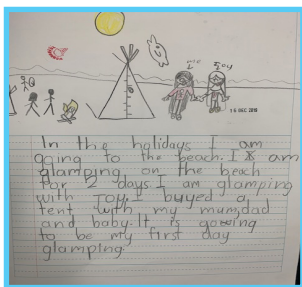 me Joy
16 DEC 2018
In the holidays I am
going to the beach. I am
glamping on the beach
for 2 days I am glamping
with Joy. I buyed a
tent with my mum, dad
and baby. It is gowing
to be my first day
glamping.